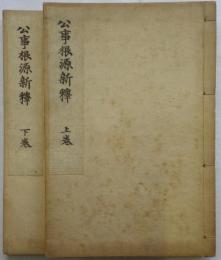 公事根源新釋
上卷
公事根源新釋
下卷